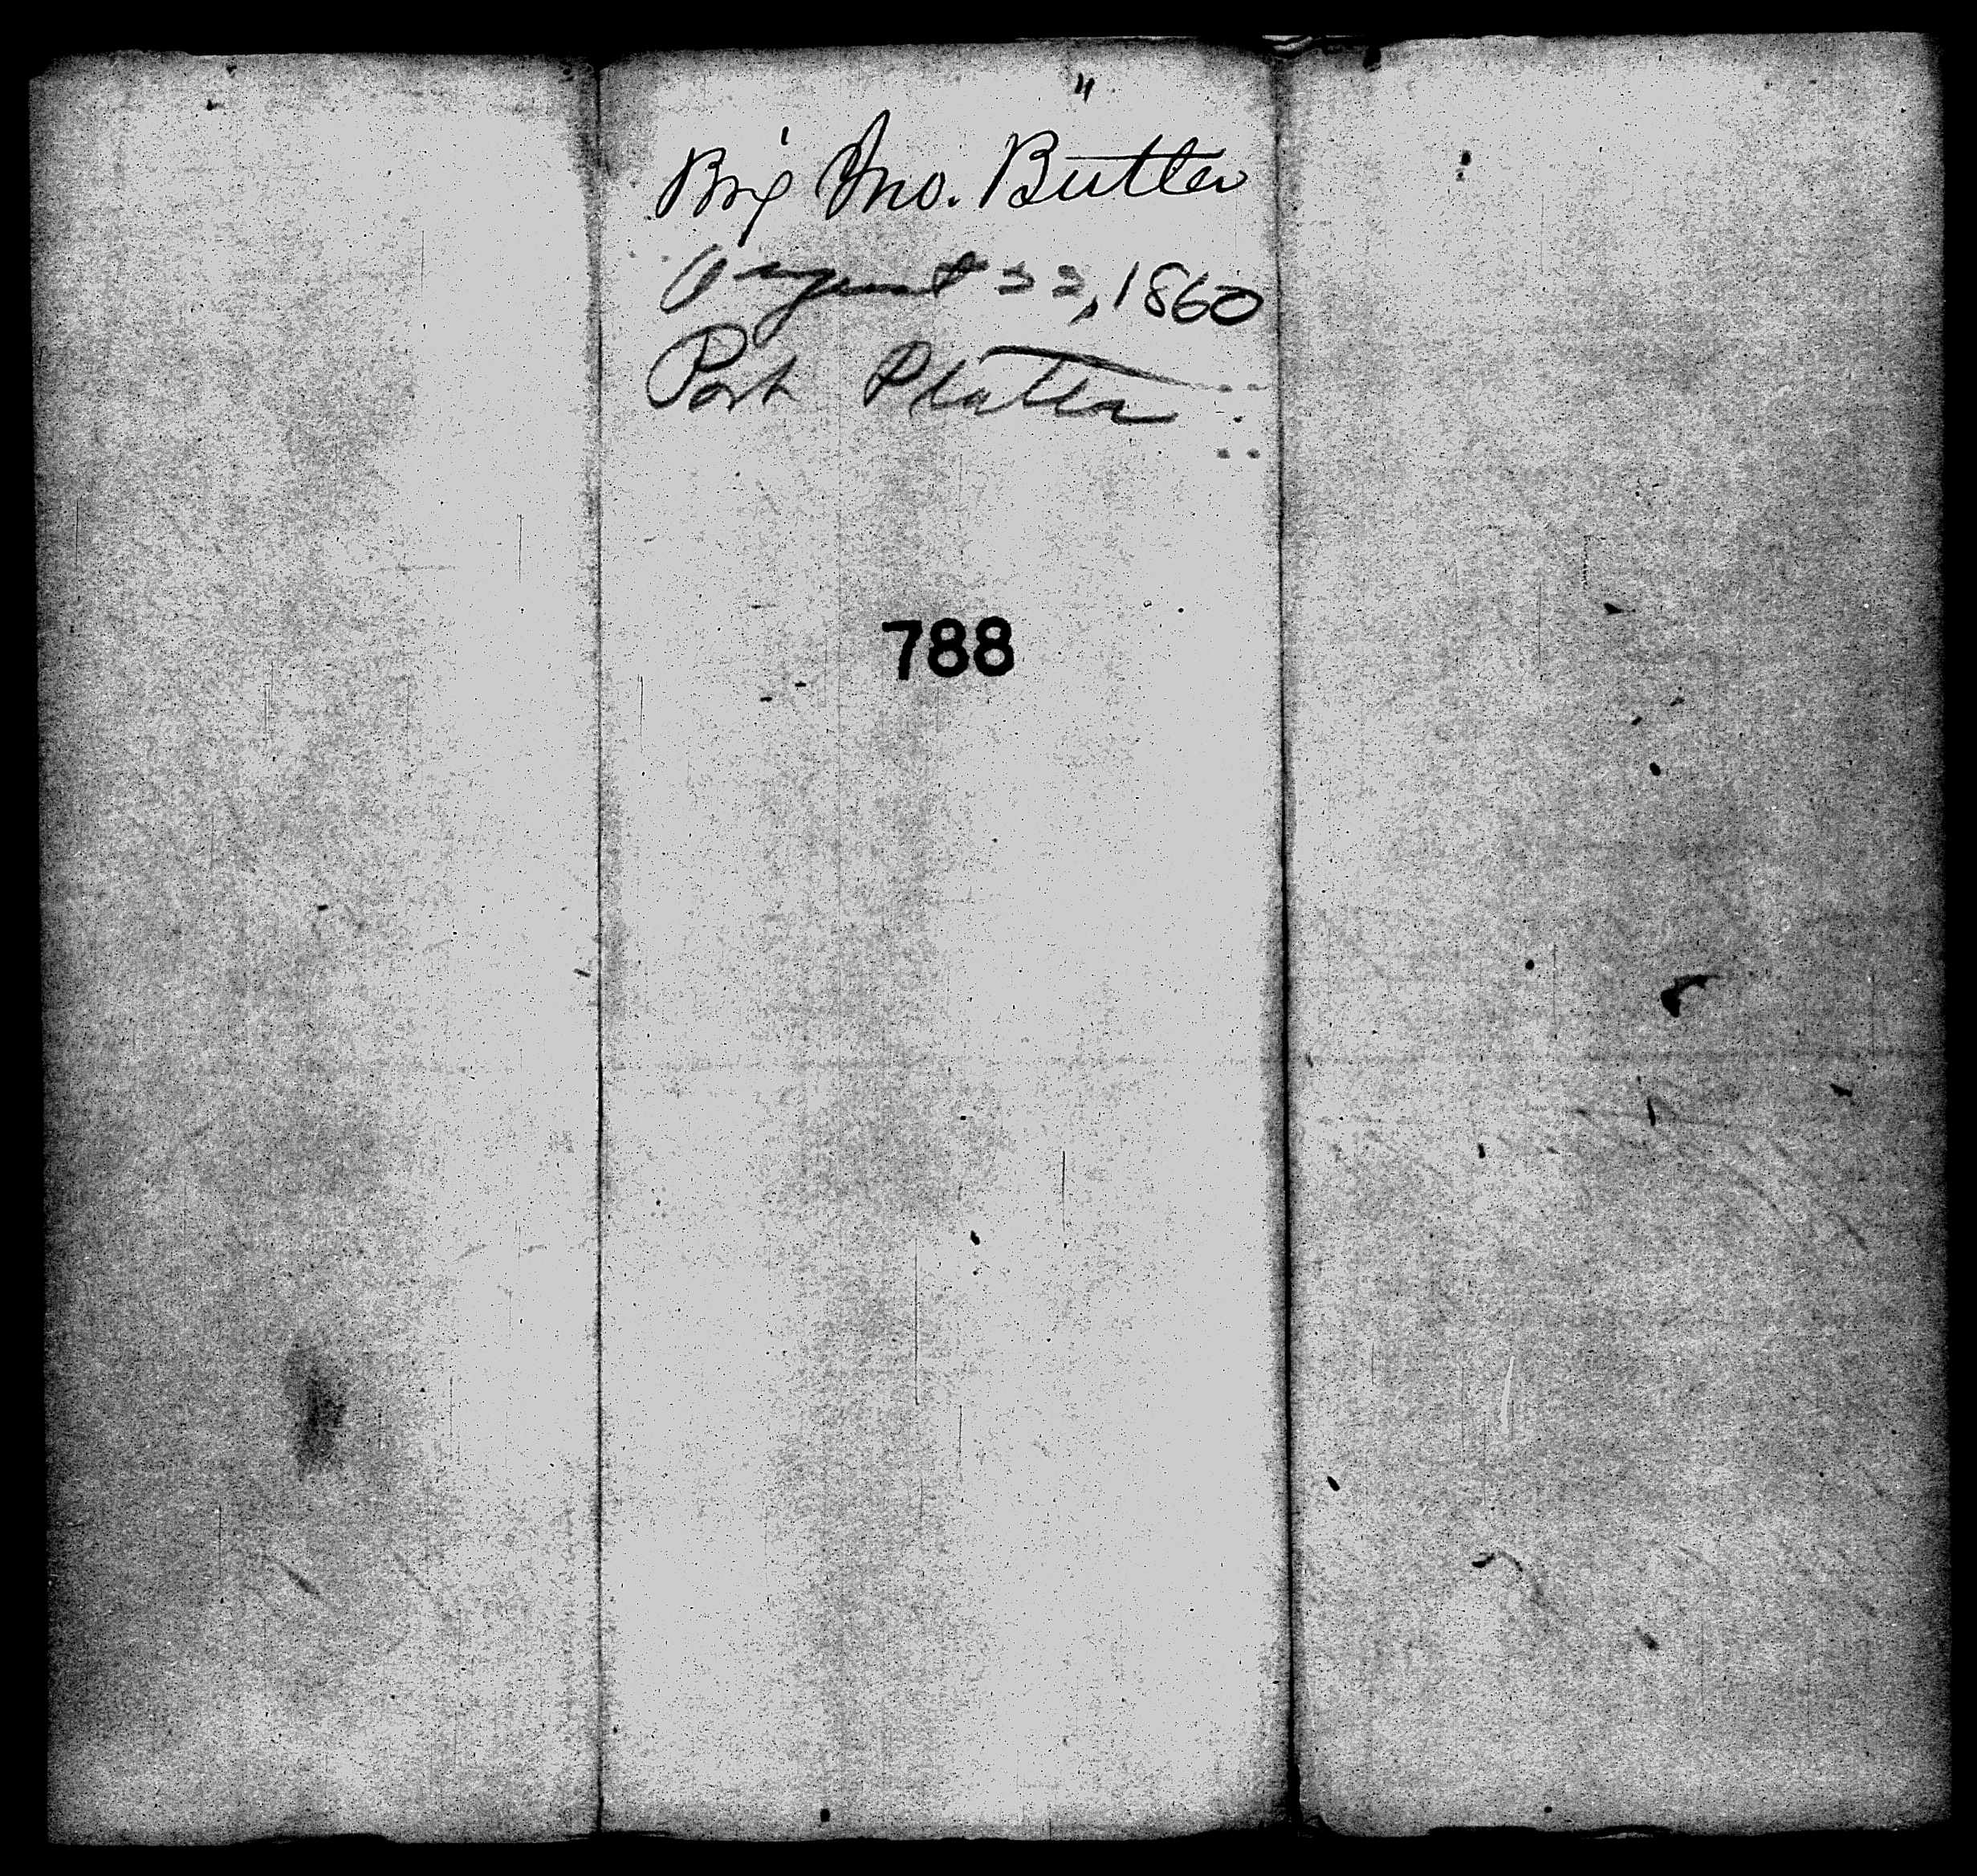 Brig Jno. Butler
August 22, 1860
Port Platta
788